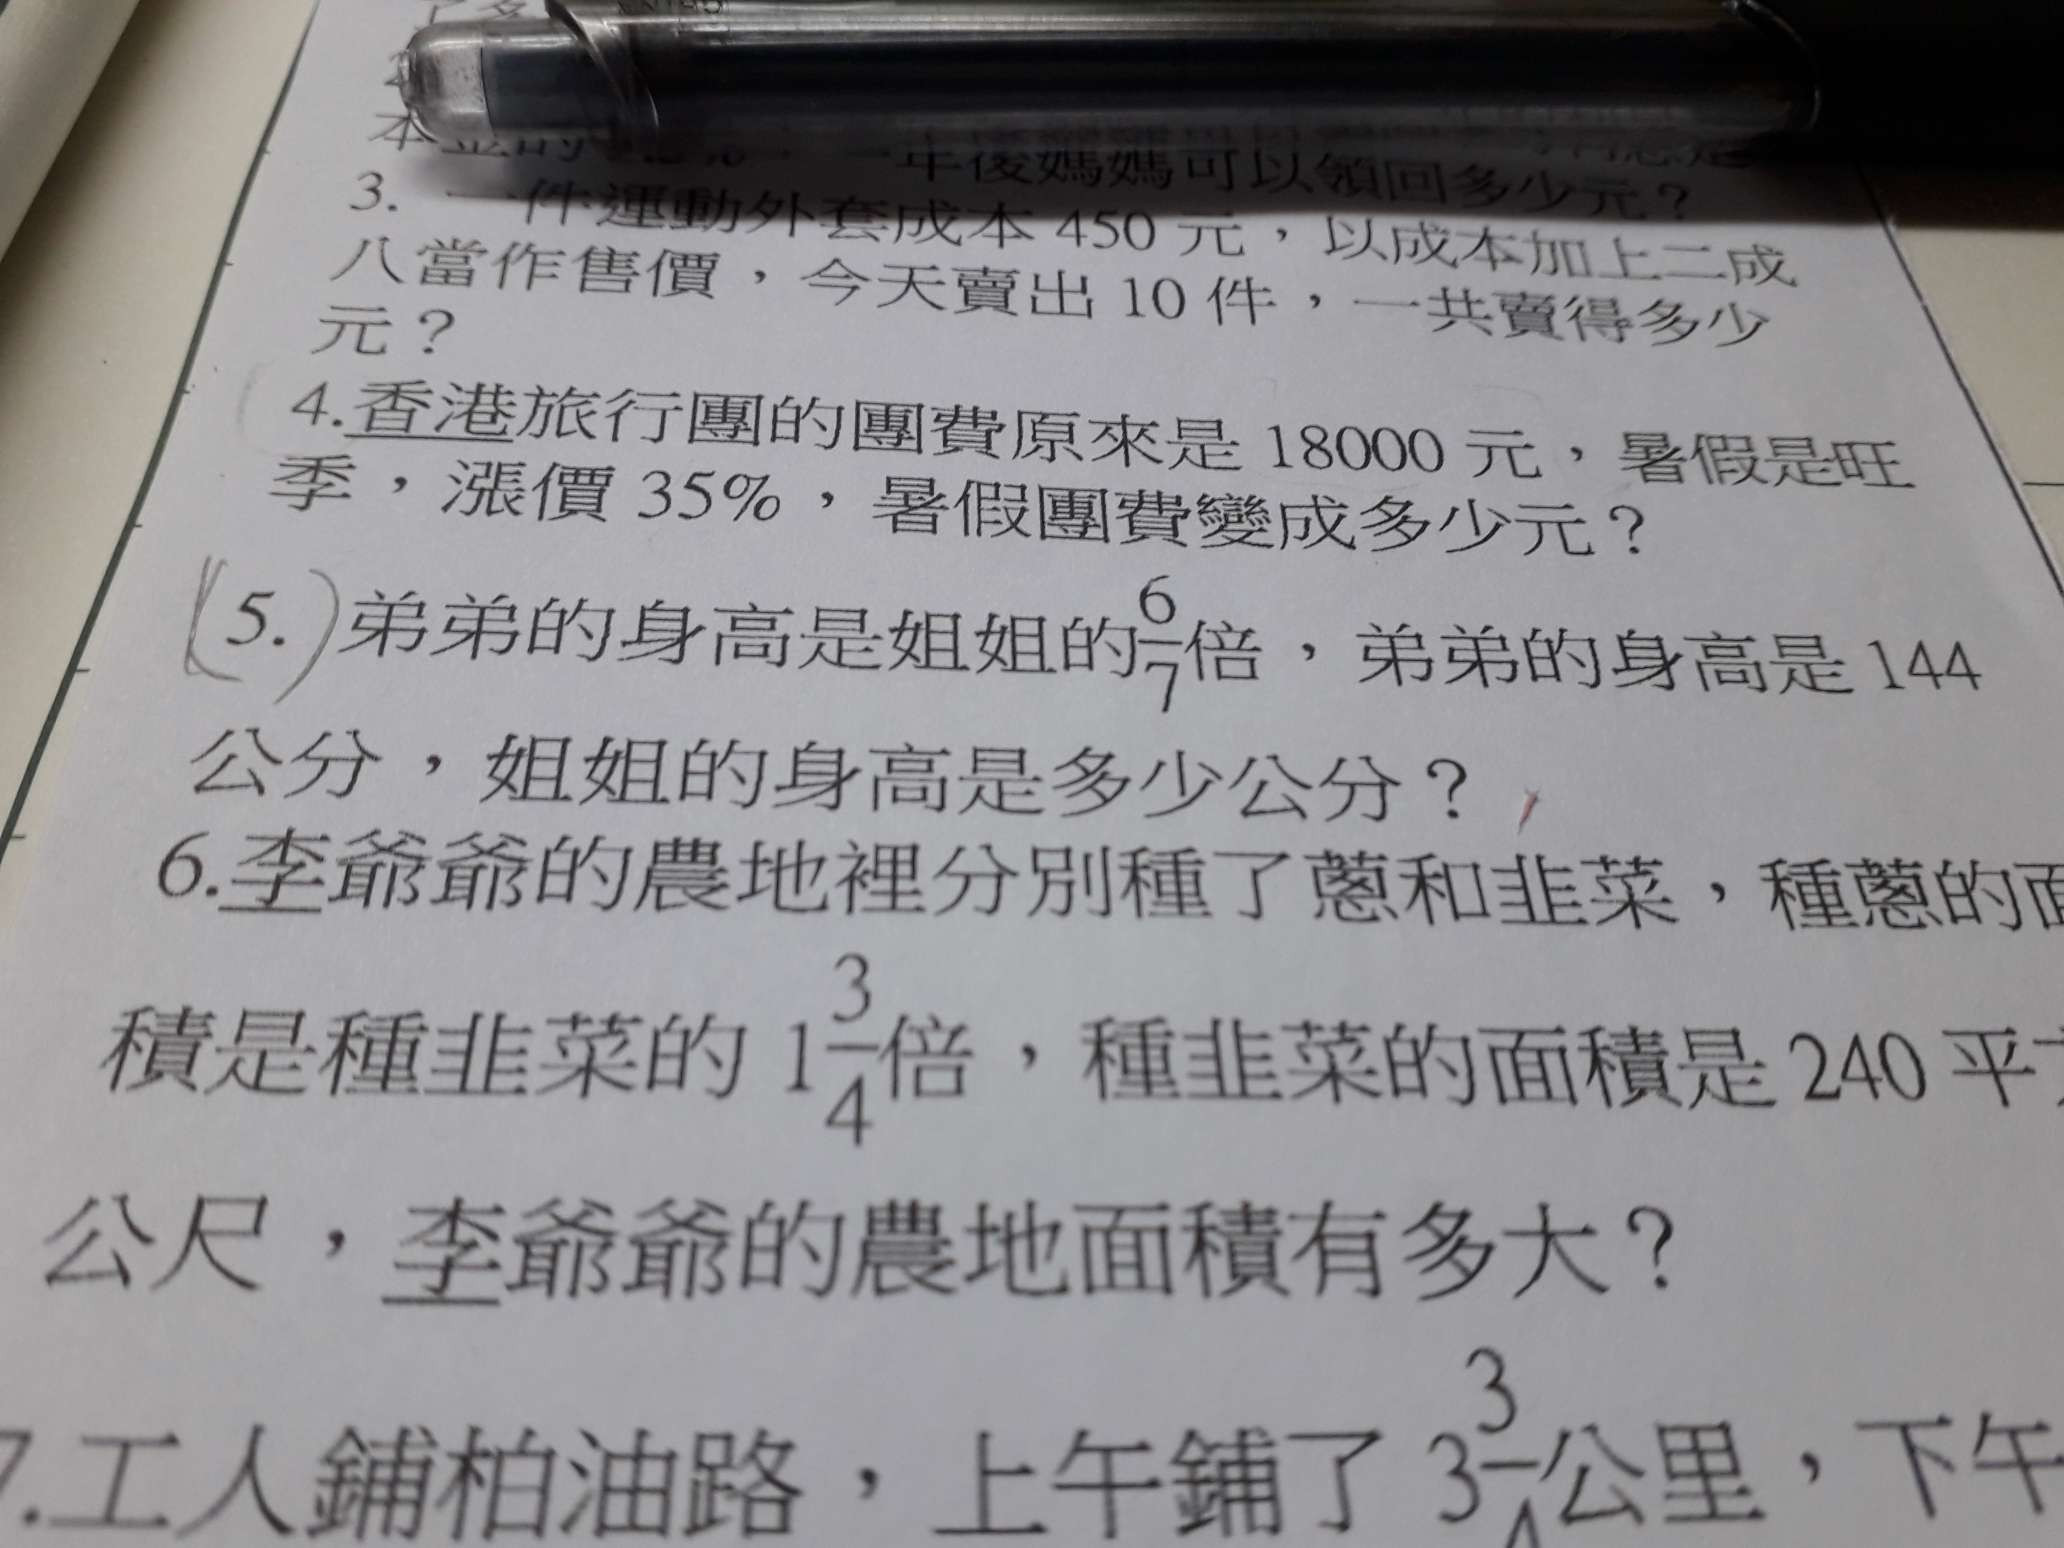 年後媽媽可以領回多少元？
3. 一件運動外套成本 450 元，以成本加上二成
八當作售價，今天賣出 10 件，一共賣得多少
元？
4.香港旅行團的團費原來是 18000 元，暑假是旺
季，漲價 35%，暑假團費變成多少元？
(5.)弟弟的身高是姐姐的6/7倍，弟弟的身高是 144
公分，姐姐的身高是多少公分？
6.李爺爺的農地裡分別種了蔥和韭菜，種蔥的面
積是種韭菜的 1 3/4倍，種韭菜的面積是 240 平
公尺，李爺爺的農地面積有多大？
7.工人鋪柏油路，上午鋪了 3 3/4公里，下午